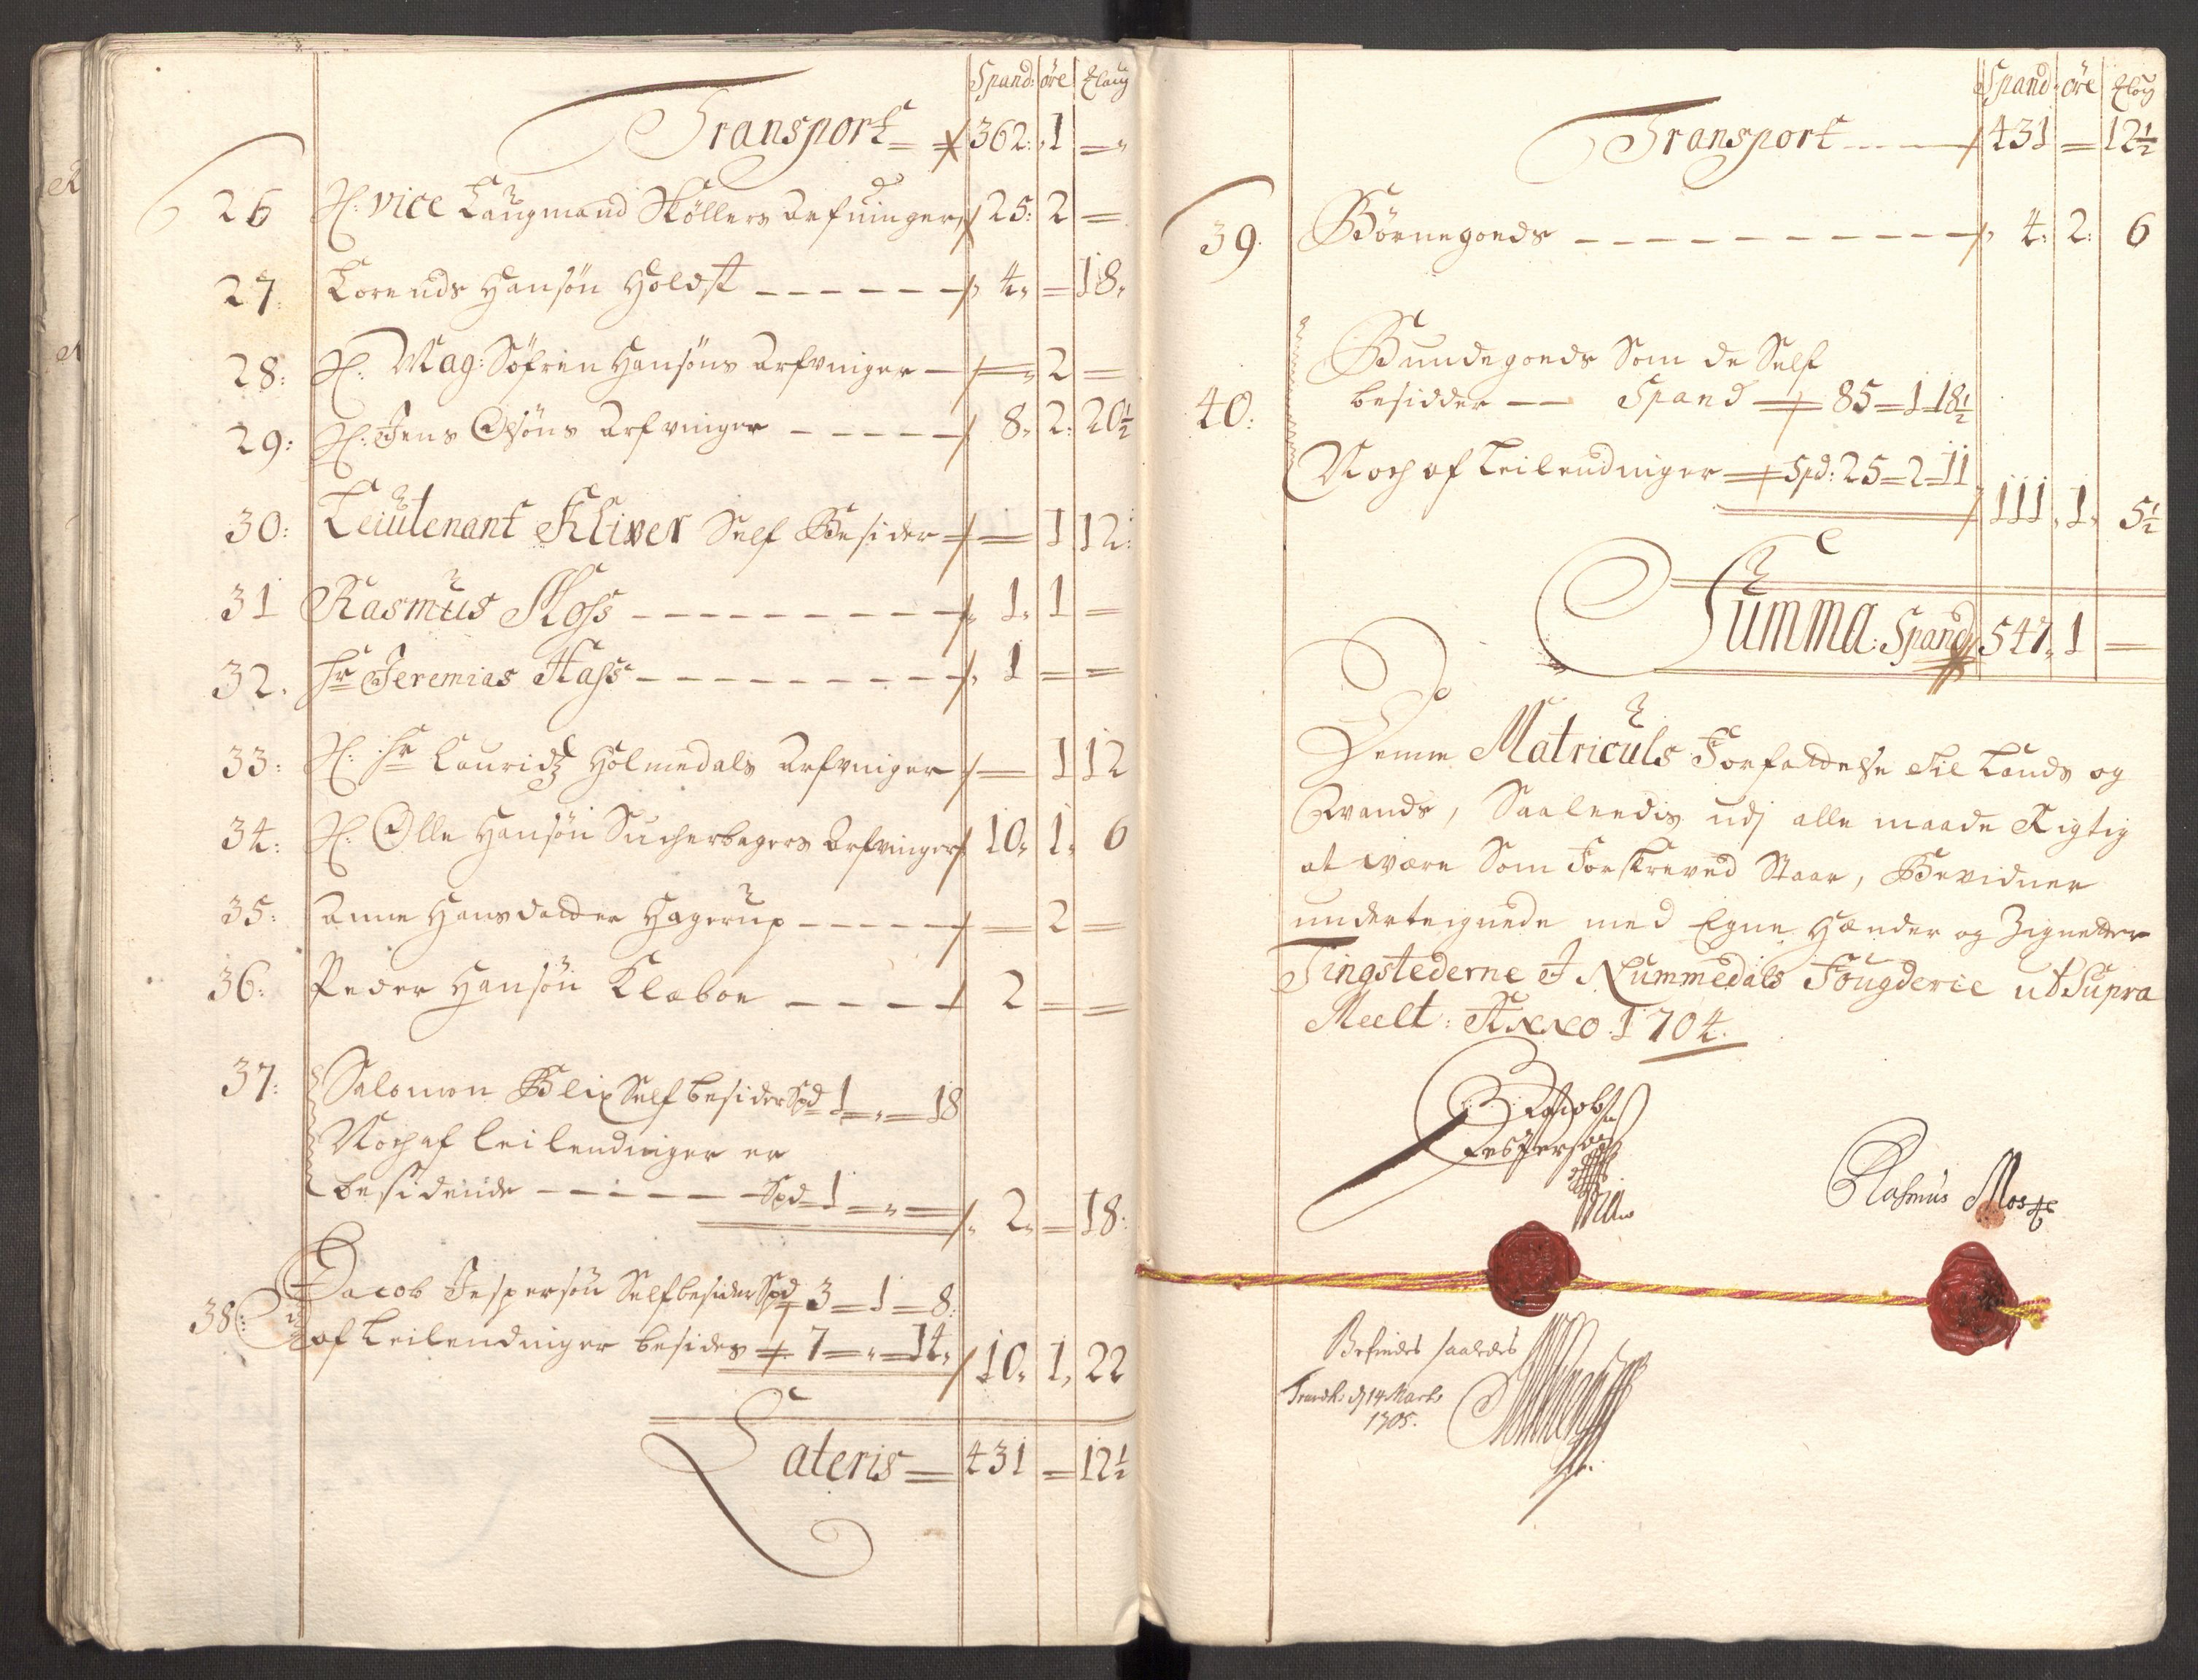 Spand: øre Klaug
Transport 362: 1 =
26 S: vice Laugmand Møllers Arfuinger 25: 2 =
27: Lorends Hansøn Holdst 4 = 18
28: S: Mag: Søfren Hansøns Arfvinger = 2 =
29: S: Jens Olsøns Arfvinger 8, 2: 20½
30: Leiutenant Kliver Self Besider = 1 12:
31 Rasmus Moss 1, 1 =
32. Hr Jeremias Hass 1 = =
33: S: Hr Lauridz Holmedals Arfvinger = 1 12
34: S: Olle Hansøn Sucherbagers Arfvinger 10, 1, 6
35: Anne Hansdatter Hagerup = 2 =
36: Peder Hansøn Klæboe 2 = =
37: Salomon Blix Self besider Spd 1 = „ = 18
Noch af leilendinger er
besidende Spd 1 = „ = 2, = 18:
38: Jacob Jespersøn Self besider Spd 3 = 1 = 8:
af Leilendinger besides 7 = „ = 14, 10, 1, 22
Lateris = 431 = 12½
Spand øre Klaug
Transport 431 = 12½
39. Børnegoeds 4: 2: 6
Bundegoeds Som de Self
40: besidder Spand 85 = 1 18½
Noch af Leilendinger Spd: 25 = 2 = 11
111, 1, 5½
Summa: Spand 547, 1 =
Denne Matriculs Forfattelse til Lands og
Vands, Saaleedis udj alle maade Rigtig
at være Som Forskreved Staar, Bevidner
underteignede med Egne Hænder og Zignetter
Tingstederne I Nummedals Fougderie ut Supra
Meelt: Anno 1704.
Jespersøn
Rasmus Mos
Befindes saaledes
Trondh: d 14 Marts
1705.